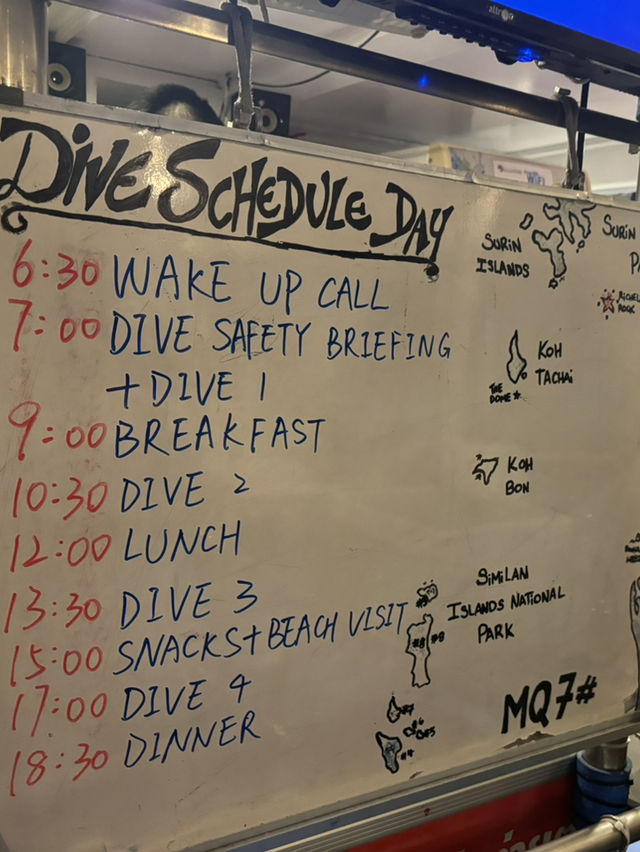 DIVE SCHEDULE DAY
6:30 WAKE UP CALL
7:00 DIVE SAFETY BRIEFING
+ DIVE 1
9:00 BREAKFAST
10:30 DIVE 2
12:00 LUNCH
13:30 DIVE 3
15:00 SNACKS + BEACH VISIT
17:00 DIVE 4
18:30 DINNER
SURIN
ISLANDS
SURIN
ROCK
KOH
TACHAI
THE
DOME *
KOH
BON
SIMILAN
ISLANDS NATIONAL
PARK
#9
#8 #9
#7
#6
#5
#4
MQ7#